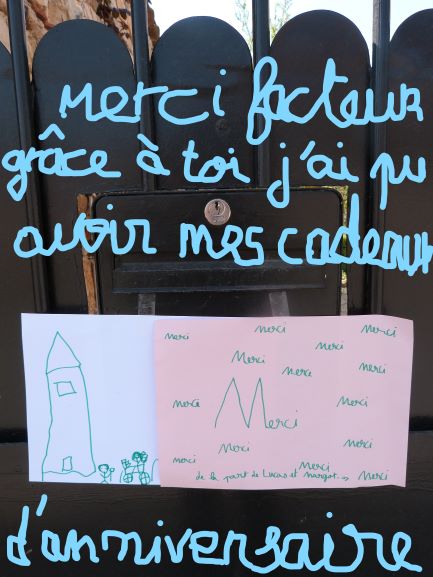 Merci facteur
grâce à toi j'ai pu
avoir mes cadeaux
merci merci merci
Merci merci
merci merci
merci Merci merci
Merci merci
merci Merci
de la part de Lucas et margot. merci
d'anniversaire